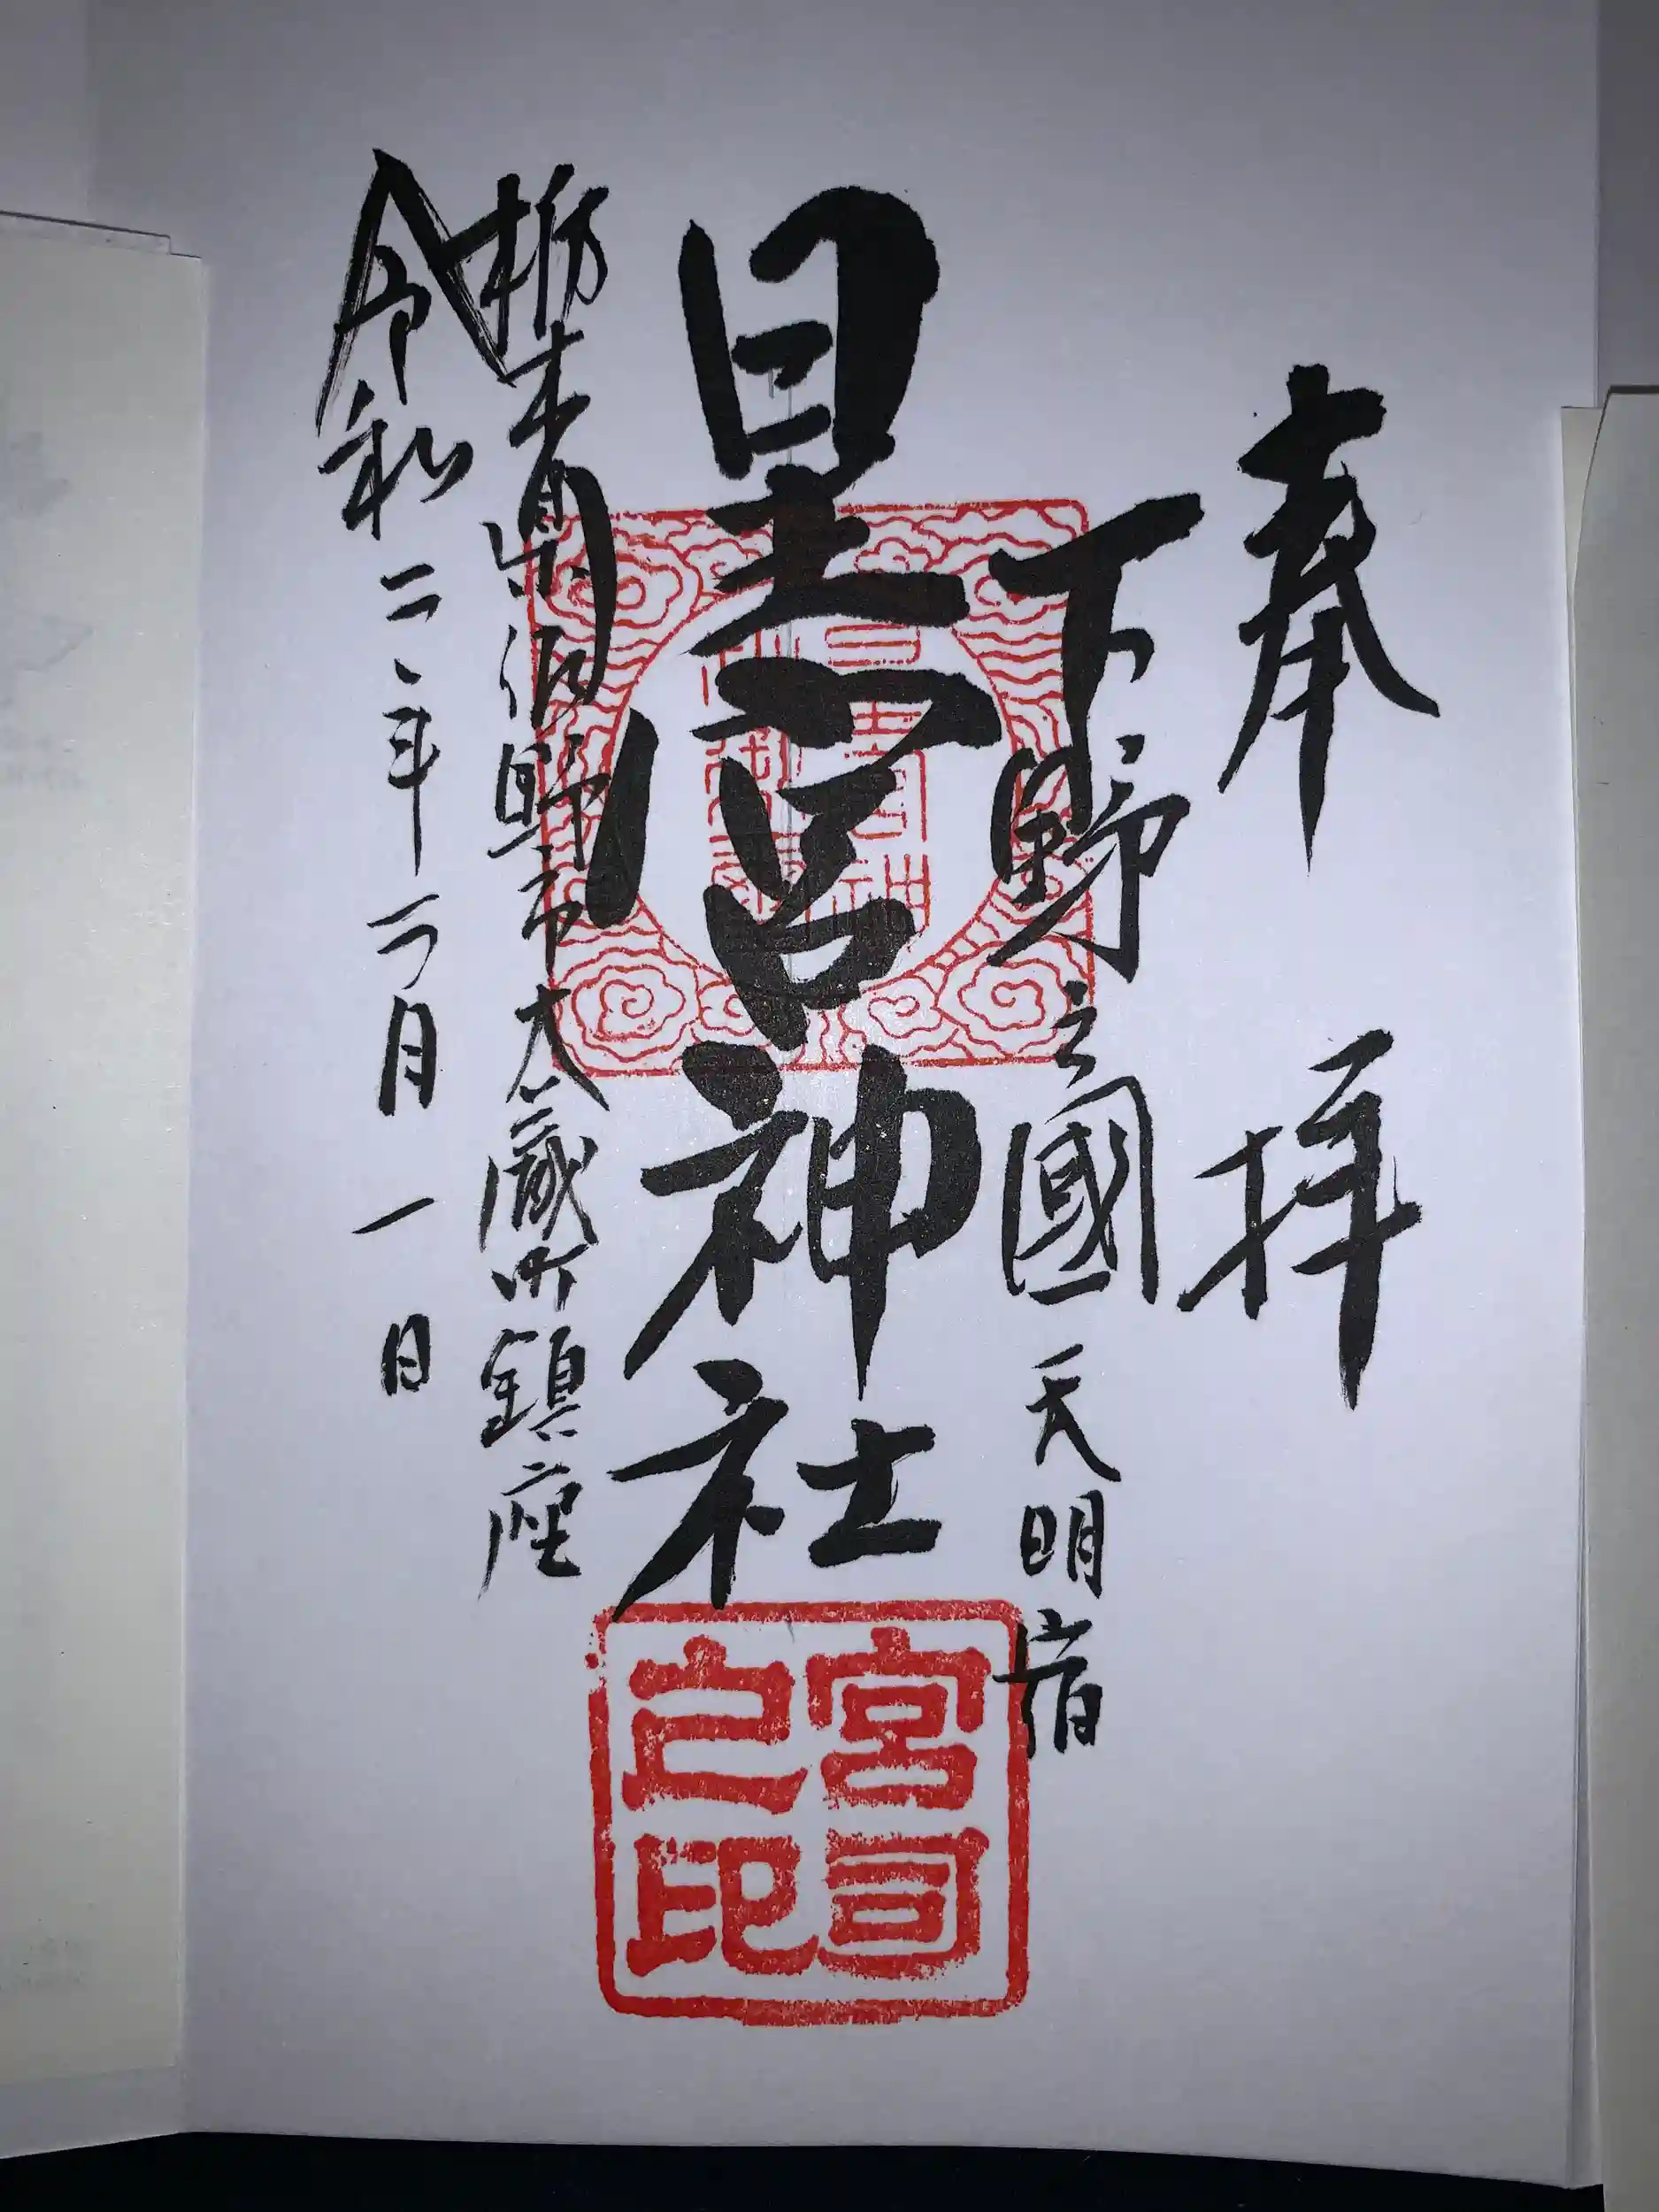 奉拝
下野之國天明宿
星宮神社
栃木県佐野市大蔵町鎮座
令和二年一月一日
宮司之印